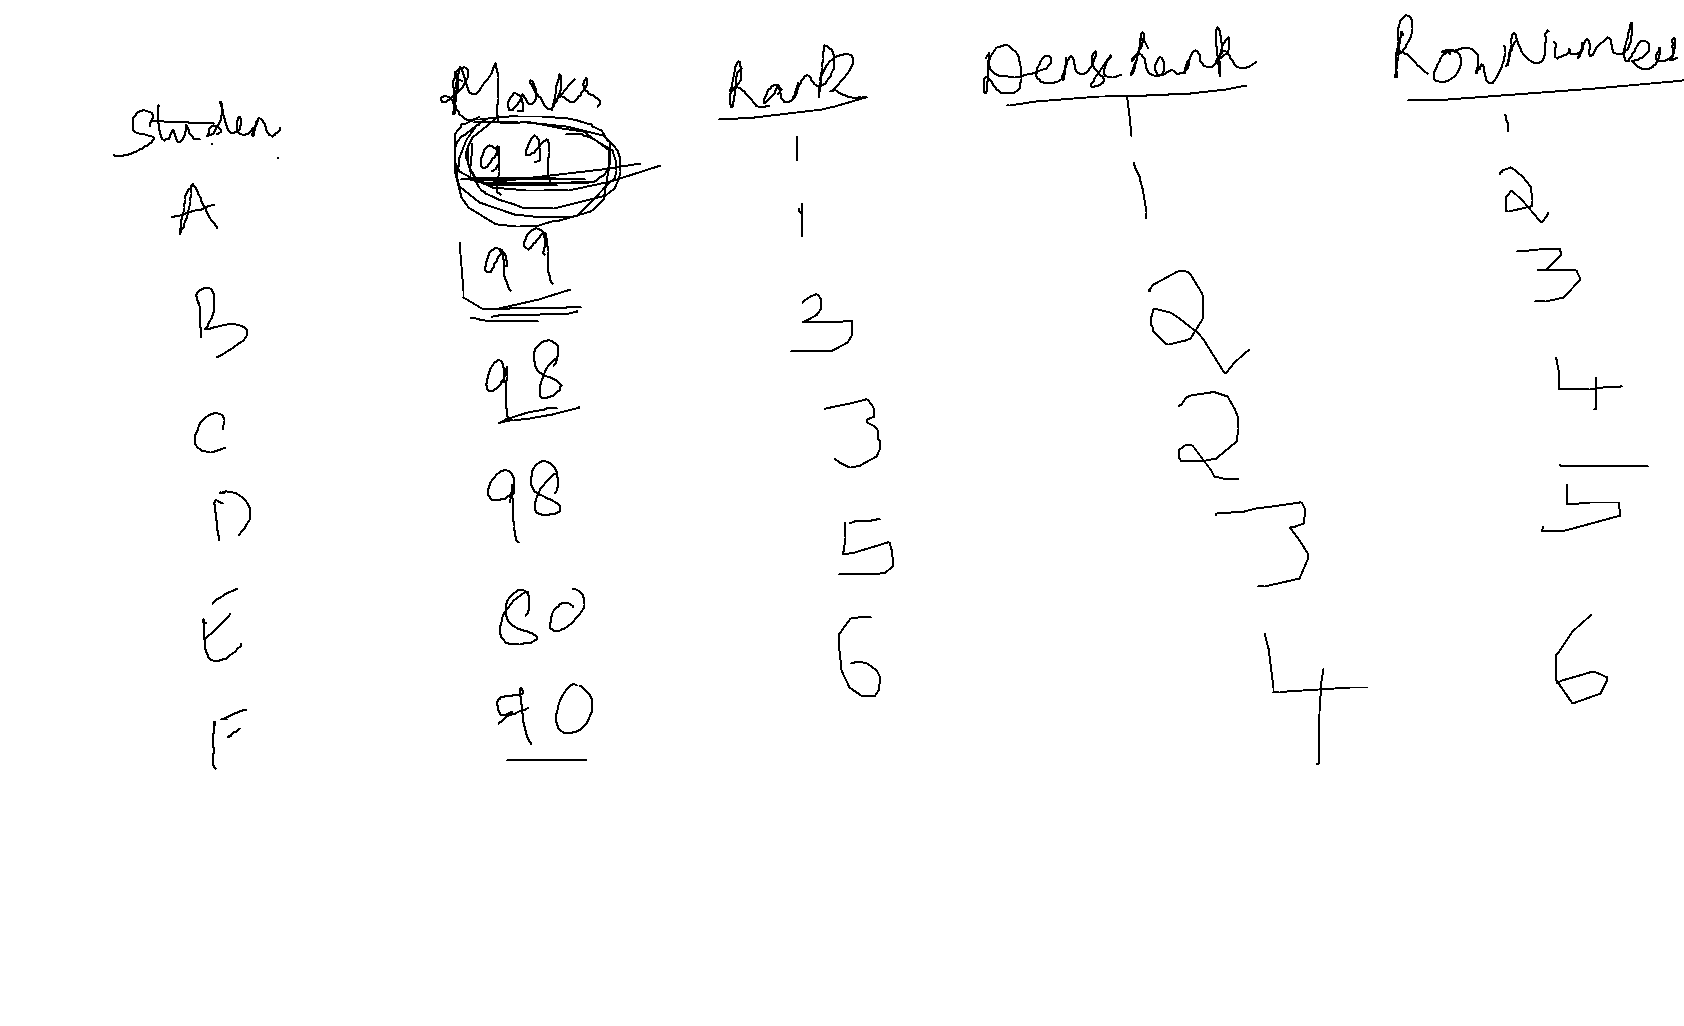 Studen Marks Rank Dense rank Row Number
A 99 1 1 1
B 99 1 1 2
C 98 3 2 3
D 98 3 2 4
E 80 5 3 5
F 90 6 4 6